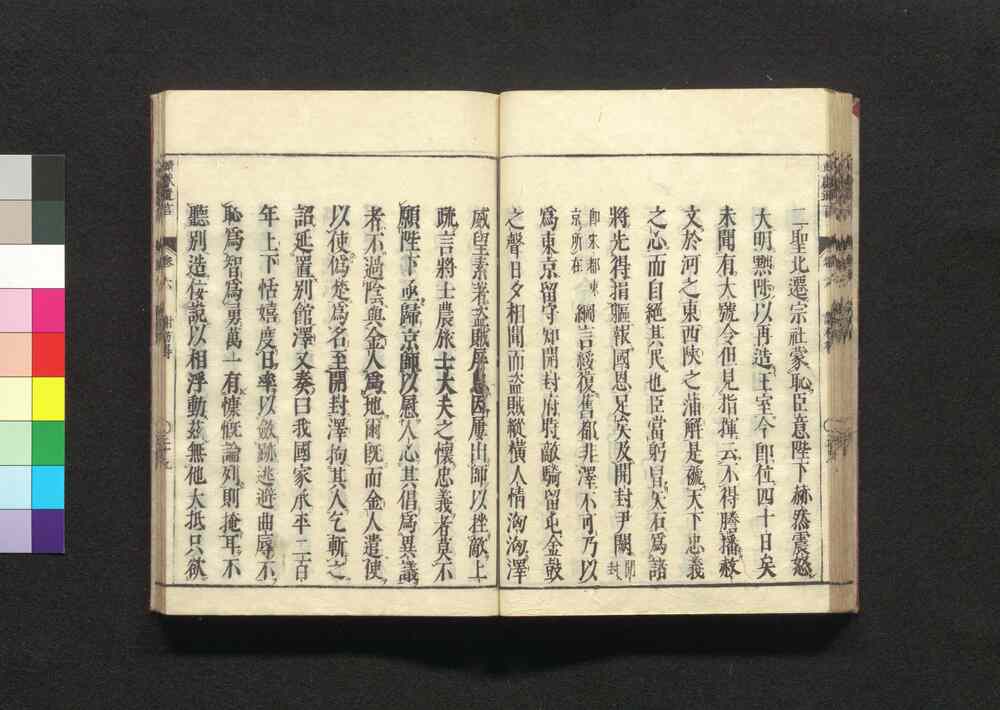 二聖北遷宗社蒙恥臣意陛下赫然震怒
大明黜陟以再造王室今即位四十日矣
未聞有大號令但見指揮云不得謄播赦
文於河之東西陝之蒲解是褫天下忠義
之心而自絕其民也臣當躬冒矢石為諸
將先得捐軀報國恩足矣及開封尹闕
開封
即宋都東京所在
綱言綏復舊都非澤不可乃以
為東京留守知開封府時敵騎留屯金鼓
之聲日夕相聞而盜賊縱橫人情洶洶澤
威望素著盜賊屏息因屢出師以挫敵上
疏言將士農旅士大夫之懷忠義者莫不
願陛下亟歸京師以慰人心其倡為異議
者不過陰與金人為地爾既而金人遣使
以使偽楚為名至開封澤拘其人乞斬之
詔延置別館澤又奏曰我國家承平二百
年上下恬嬉度日率以斂跡逃避曲辱不
恥為智為勇萬一有慷慨論列則掩耳不
聽別造佞說以相浮動茲無他大抵只欲
卷六